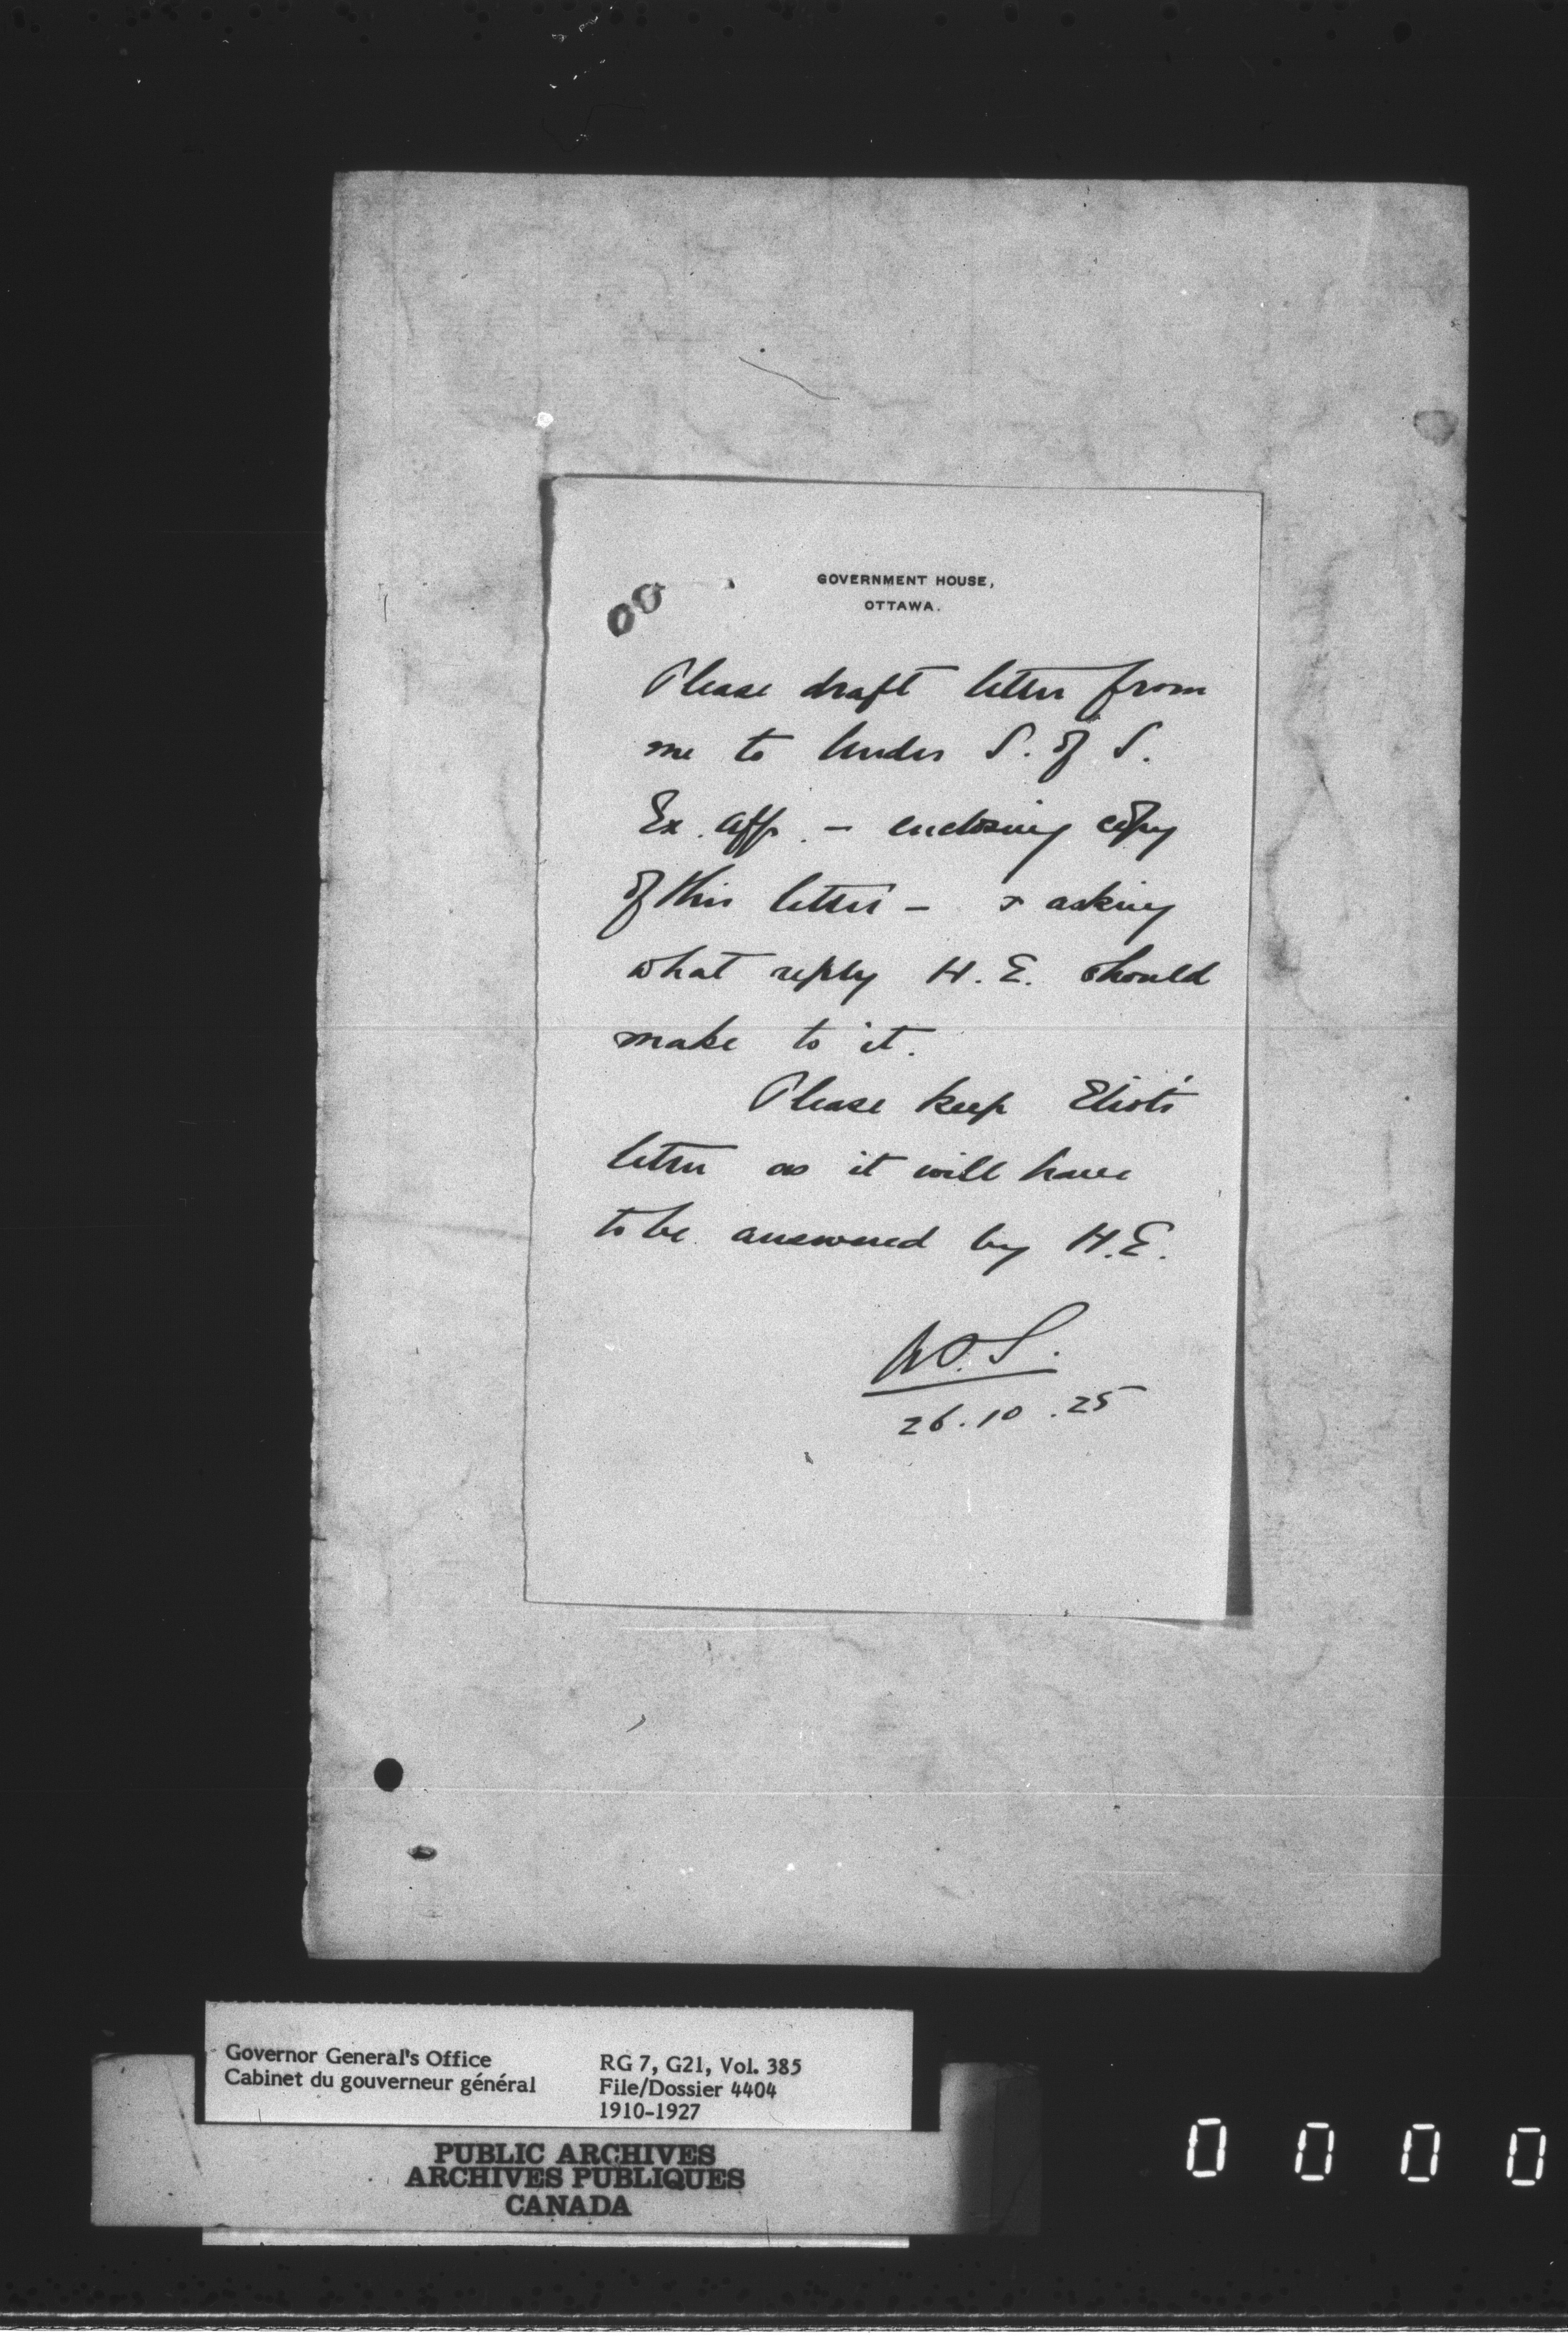 GOVERNMENT HOUSE,
OTTAWA.
Please draft letter from
me to Under S. of S.
Ex. Aff. – enclosing copy
of this letter – & asking
what reply H.E. should
make to it.
Please keep Eliot's
letter as it will have
to be answered by H.E.
26.10.25
Governor General's Office
Cabinet du gouverneur général
RG 7, G21, Vol. 385
File/Dossier 4404
1910-1927
PUBLIC ARCHIVES
ARCHIVES PUBLIQUES
CANADA
0 0 0 0